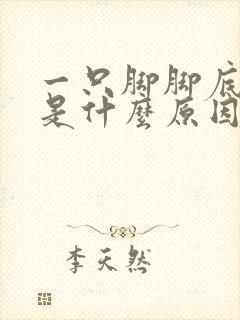 一只脚脚底
是什麼原因
李天然